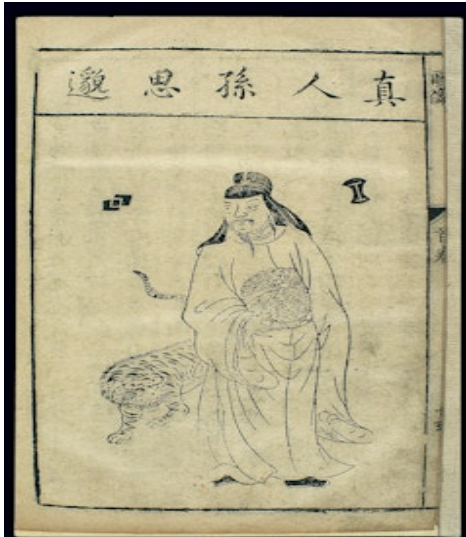 真人孫思邈